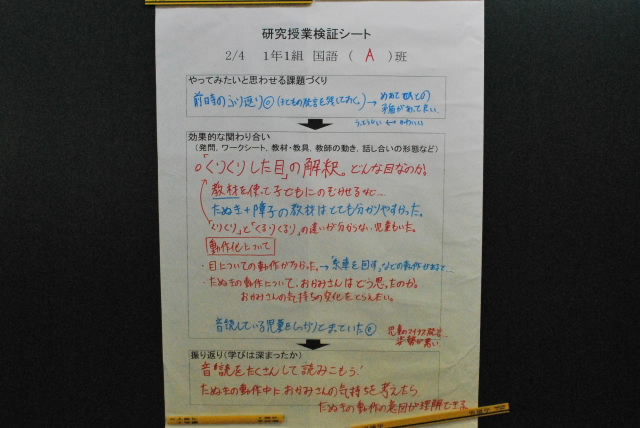 研究授業検証シート
2/4 1年1組 国語 ( A )班
やってみたいと思わせる課題づくり
前時のふり返り◎(子どもの発言を残しておく。)→めあてとの
矛盾があって良い。
効果的な関わり合い
(発問、ワークシート、教材・教具、教師の動き、話し合いの形態など)
○「くりくりした目」の解釈。どんな目なのか。
教材を使って子どもにのせる
たぬき+障子の教材はとても分かりやすかった。
「くりくり」と「くるりくるり」の違いが分からない児童もいた。
動作化について
・目についての動作が多かった。→「糸車を回す」などの動作が
・たぬきの動作について、おかみさんはどう思ったのか。
おかみさんの気持ちの変化をとらえたい。
音読している児童をしっかりと
児童の
姿勢が悪い
振り返り(学びは深まったか)
音読をたくさんして読みこもう!
たぬきの動作中におかみさんの気持ちを考えたら
たぬきの動作の意図が理解できる